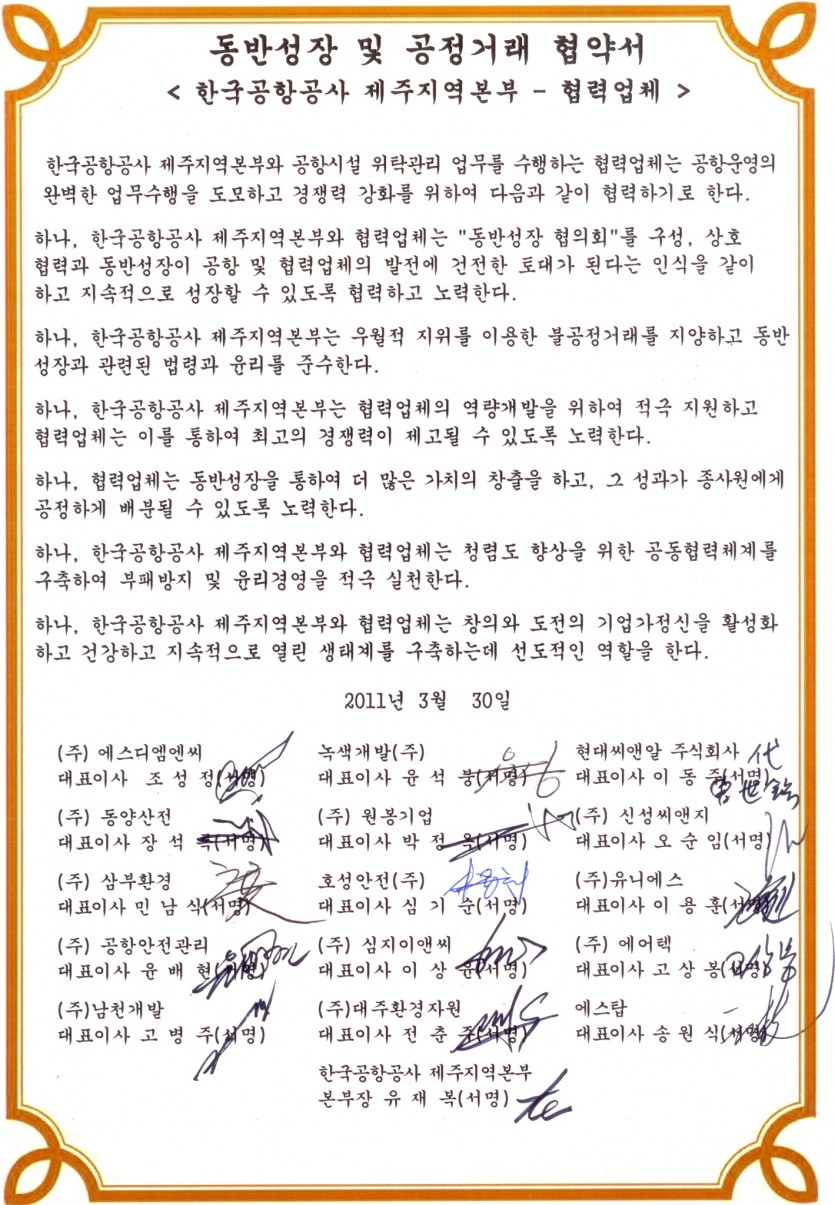 동반성장 및 공정거래 협약서
< 한국공항공사 제주지역본부 - 협력업체 >
한국공항공사 제주지역본부와 공항시설 위탁관리 업무를 수행하는 협력업체는 공항운영의
완벽한 업무수행을 도모하고 경쟁력 강화를 위하여 다음과 같이 협력하기로 한다.
하나, 한국공항공사 제주지역본부와 협력업체는 "동반성장 협의회"를 구성, 상호
협력과 동반성장이 공항 및 협력업체의 발전에 건전한 토대가 된다는 인식을 같이
하고 지속적으로 성장할 수 있도록 협력하고 노력한다.
하나, 한국공항공사 제주지역본부는 우월적 지위를 이용한 불공정거래를 지양하고 동반
성장과 관련된 법령과 윤리를 준수한다.
하나, 한국공항공사 제주지역본부는 협력업체의 역량개발을 위하여 적극 지원하고
협력업체는 이를 통하여 최고의 경쟁력이 제고될 수 있도록 노력한다.
하나, 협력업체는 동반성장을 통하여 더 많은 가치의 창출을 하고, 그 성과가 종사원에게
공정하게 배분될 수 있도록 노력한다.
하나, 한국공항공사 제주지역본부와 협력업체는 청렴도 향상을 위한 공동협력체계를
구축하여 부패방지 및 윤리경영을 적극 실천한다.
하나, 한국공항공사 제주지역본부와 협력업체는 창의와 도전의 기업가정신을 활성화
하고 건강하고 지속적으로 열린 생태계를 구축하는데 선도적인 역할을 한다.
2011년 3월 30일
(주) 에스디엠엔씨 녹색개발(주) 현대씨앤알 주식회사 代
대표이사 조 성 정(서명) 대표이사 윤 석 붕(서명) 대표이사 이 동 주(서명)
(주) 동양산전 (주) 원봉기업 (주) 신성씨앤지
대표이사 장 석 (서명) 대표이사 박 정 (서명) 대표이사 오 순 임(서명)
(주) 삼부환경 호성안전(주) (주)유니에스
대표이사 민 남 식(서명) 대표이사 심 기 순(서명) 대표이사 이 용 훈(서명)
(주) 공항안전관리 (주) 심지이앤씨 (주) 에어텍
대표이사 윤 배 현(서명) 대표이사 이 상 윤(서명) 대표이사 고 상 봉(서명)
(주)남천개발 (주)대주환경자원 에스탑
대표이사 고 병 주(서명) 대표이사 전 춘 주(서명) 대표이사 송 원 식(서명)
한국공항공사 제주지역본부
본부장 유 재 복(서명)